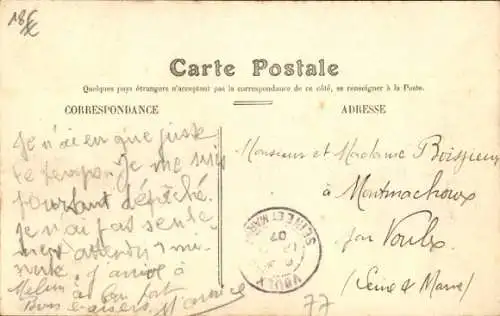 18 f
Carte Postale
Quelques pays étrangers n'acceptent pas la correspondance de ce côté, se renseigner à la Poste.
CORRESPONDANCE
ADRESSE
Je n'ai eu que juste
le temps. Je me suis
pourtant dépêché.
Je n'ai pas
mi-
nute. J'arrive à
Melun à bon port
Bons baisers. Maurice
Monsieur et Madame Boissieux
à Montmachoux
par Voulx
(Seine et Marne)
VOULX
SEINE ET MARNE
07
77